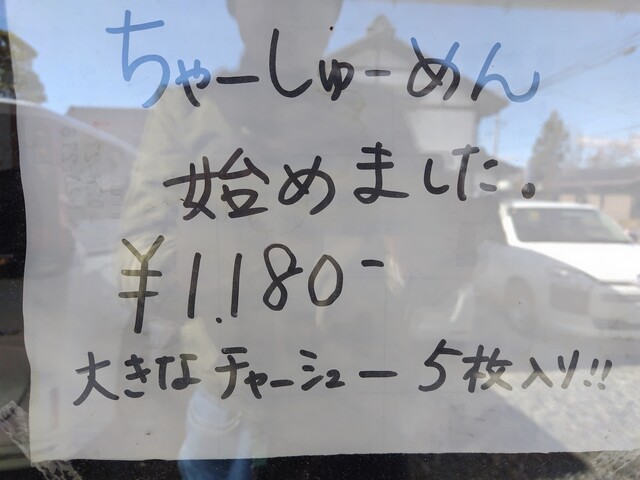 ちゃーしゅーめん
始めました。
¥1,180-
大きなチャーシュー5枚入り!!